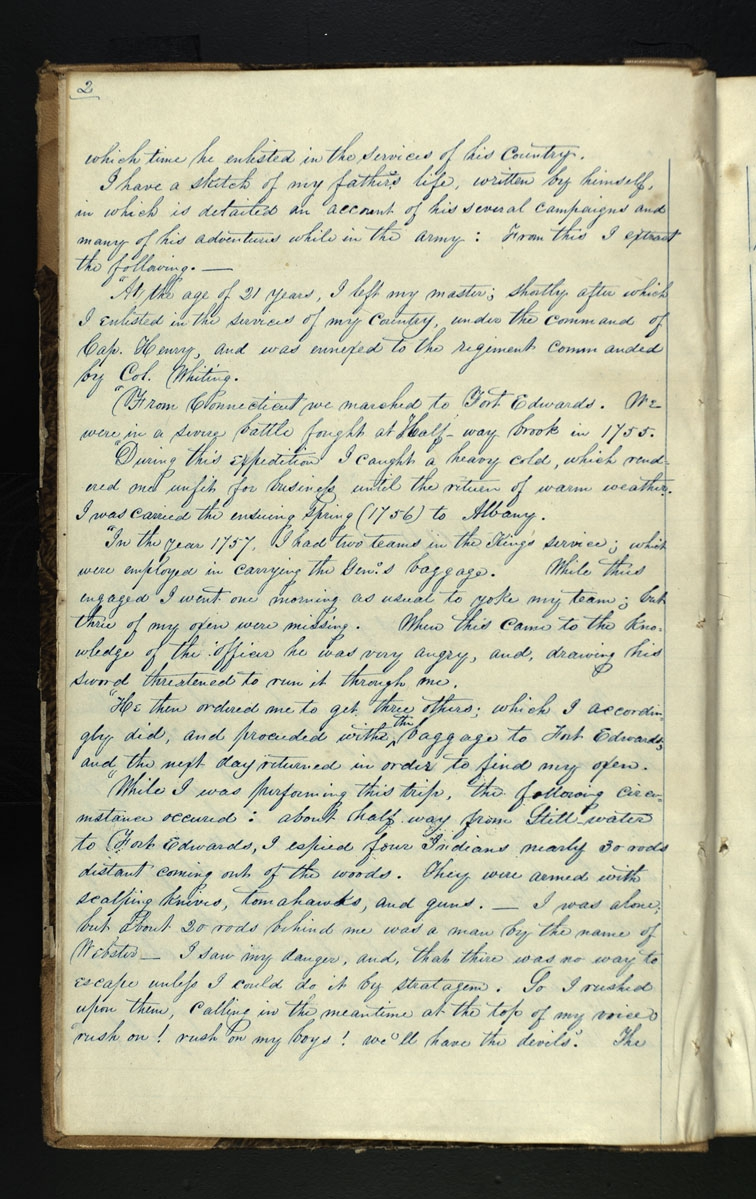 2
which time he enlisted in the services of his Country.
I have a sketch of my father's life, written by himself,
in which is detailed an account of his several campaigns and
many of his adventures while in the army: From this I extract
the following. —
"At the age of 21 years, I left my master; shortly after which
I enlisted in the services of my country, under the command of
Cap. Henry, and was ennexed to the regiment commanded
by Col. Whiting.
"From Connecticut we marched to Fort Edwards. We
were in a severe battle fought at Half-way brook in 1755.
"During this expedition I caught a heavy cold, which rend-
ered me unfit for business until the return of warm weather.
I was carried the ensuing Spring (1756) to Albany.
"In the year 1757, I had two teams in the King's service; which
were employed in carrying the Gen's baggage. While thus
engaged I went one morning as usual to yoke my team; but
three of my oxen were missing. When this came to the kno-
wledge of the officer he was very angry, and, drawing his
sword threatened to run it through me.
"He then ordered me to get three others; which I accordin-
gly did, and proceeded with the baggage to Fort Edwards;
and the next day returned in order to find my oxen.
"While I was performing this trip, the following circu-
mstance occured: about half way from Still-water
to Fort Edwards, I espied four Indians nearly 30 rods
distant coming out of the woods. They were armed with
scalping knives, tomahawks, and guns. — I was alone,
but about 20 rods behind me was a man by the name of
Webster — I saw my danger, and, that there was no way to
escape unless I could do it by stratagem. So I rushed
upon them, calling in the meantime at the top of my voice
"rush on! rush on my boys! we'll have the devils". The